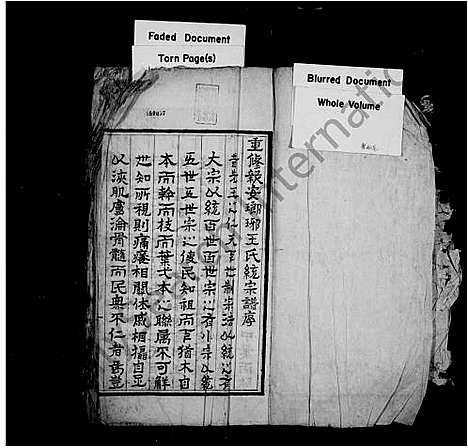 Faded Document
Torn Page(s)
Blurred Document
Whole Volume
重修新安瑯琊王氏統宗譜序
昔先王之仁天下也制宗法以統之有
大宗以統百世百世宗之有小宗以統
五世五世宗之使民知祖而下猶木自
本而幹而枝而葉弋本之聯属不可觧
也知所視則痛癢相關休戚相攝自足
以浹肌膚淪骨髓而民奥不仁者焉豈